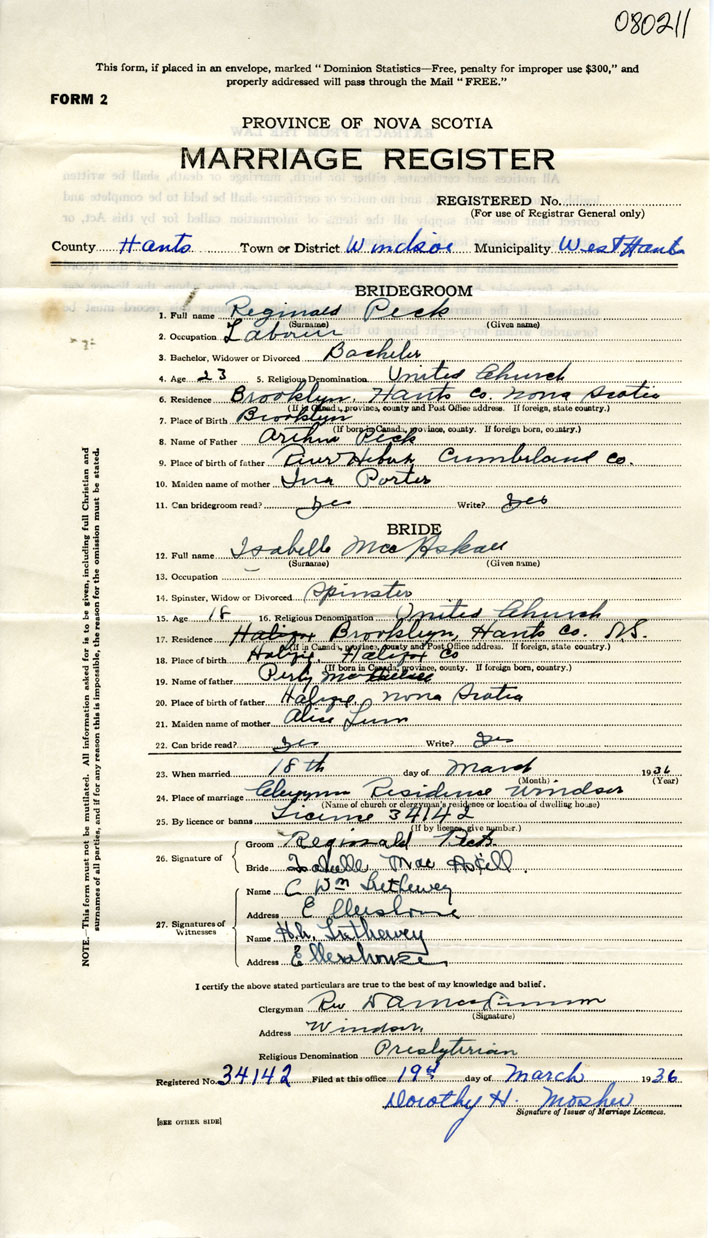 080211
This form, if placed in an envelope, marked "Dominion Statistics—Free, penalty for improper use $300," and
properly addressed will pass through the Mail "FREE."
FORM 2
PROVINCE OF NOVA SCOTIA
MARRIAGE REGISTER
REGISTERED No.
(For use of Registrar General only)
County Hants Town or District Windsor Municipality West Hants
BRIDEGROOM
1. Full name Reginald Peck
(Surname) (Given name)
2. Occupation Labourer
3. Bachelor, Widower or Divorced Bachelor
4. Age 23 5. Religious Denomination United Church
6. Residence Brooklyn, Hants Co. Nova Scotia
(If in Canada, province, county and Post Office address. If foreign, state country.)
7. Place of Birth Brooklyn
(If born in Canada, province, county. If foreign born, country.)
8. Name of Father Arthur Peck
9. Place of birth of father River Hebert Cumberland Co.
10. Maiden name of mother Ina Porter
11. Can bridegroom read? yes Write? yes
BRIDE
12. Full name Isabelle MacAskall
(Surname) (Given name)
13. Occupation
14. Spinster, Widow or Divorced Spinster
15. Age 18 16. Religious Denomination United Church
17. Residence Halifax Brooklyn, Hants Co. N.S.
(If in Canada, province, county and Post Office address. If foreign, state country.)
18. Place of birth Halifax, Halifax Co
(If born in Canada, province, county. If foreign born, country.)
19. Name of father
20. Place of birth of father Halifax, Nova Scotia
21. Maiden name of mother Alice
22. Can bride read? yes Write? yes
23. When married 18th day of March 1936
(Month) (Year)
24. Place of marriage Residense Windsor
(Name of church or clergyman's residence or location of dwelling house)
25. By licence or banns License 34142
(If by licence, give number.)
26. Signature of
Groom Reginald Peck
Bride Isabelle Mac Askill.
27. Signatures of Witnesses
Name C Wm Lethewey
Address Ellershouse
Name H.h. Lethewey
Address Ellershouse
NOTE.—This form must not be mutilated. All information asked for is to be given, including full Christian and
surnames of all parties, and if for any reason this is impossible, the reason for the omission must be stated.
I certify the above stated particulars are true to the best of my knowledge and belief.
Clergyman Rev
(Signature)
Address Windsor,
Religious Denomination Presbyterian
Registered No. 34142 Filed at this office 19th day of March 1936
Dorothy H. Mosher
Signature of Issuer of Marriage Licences.
[SEE OTHER SIDE]